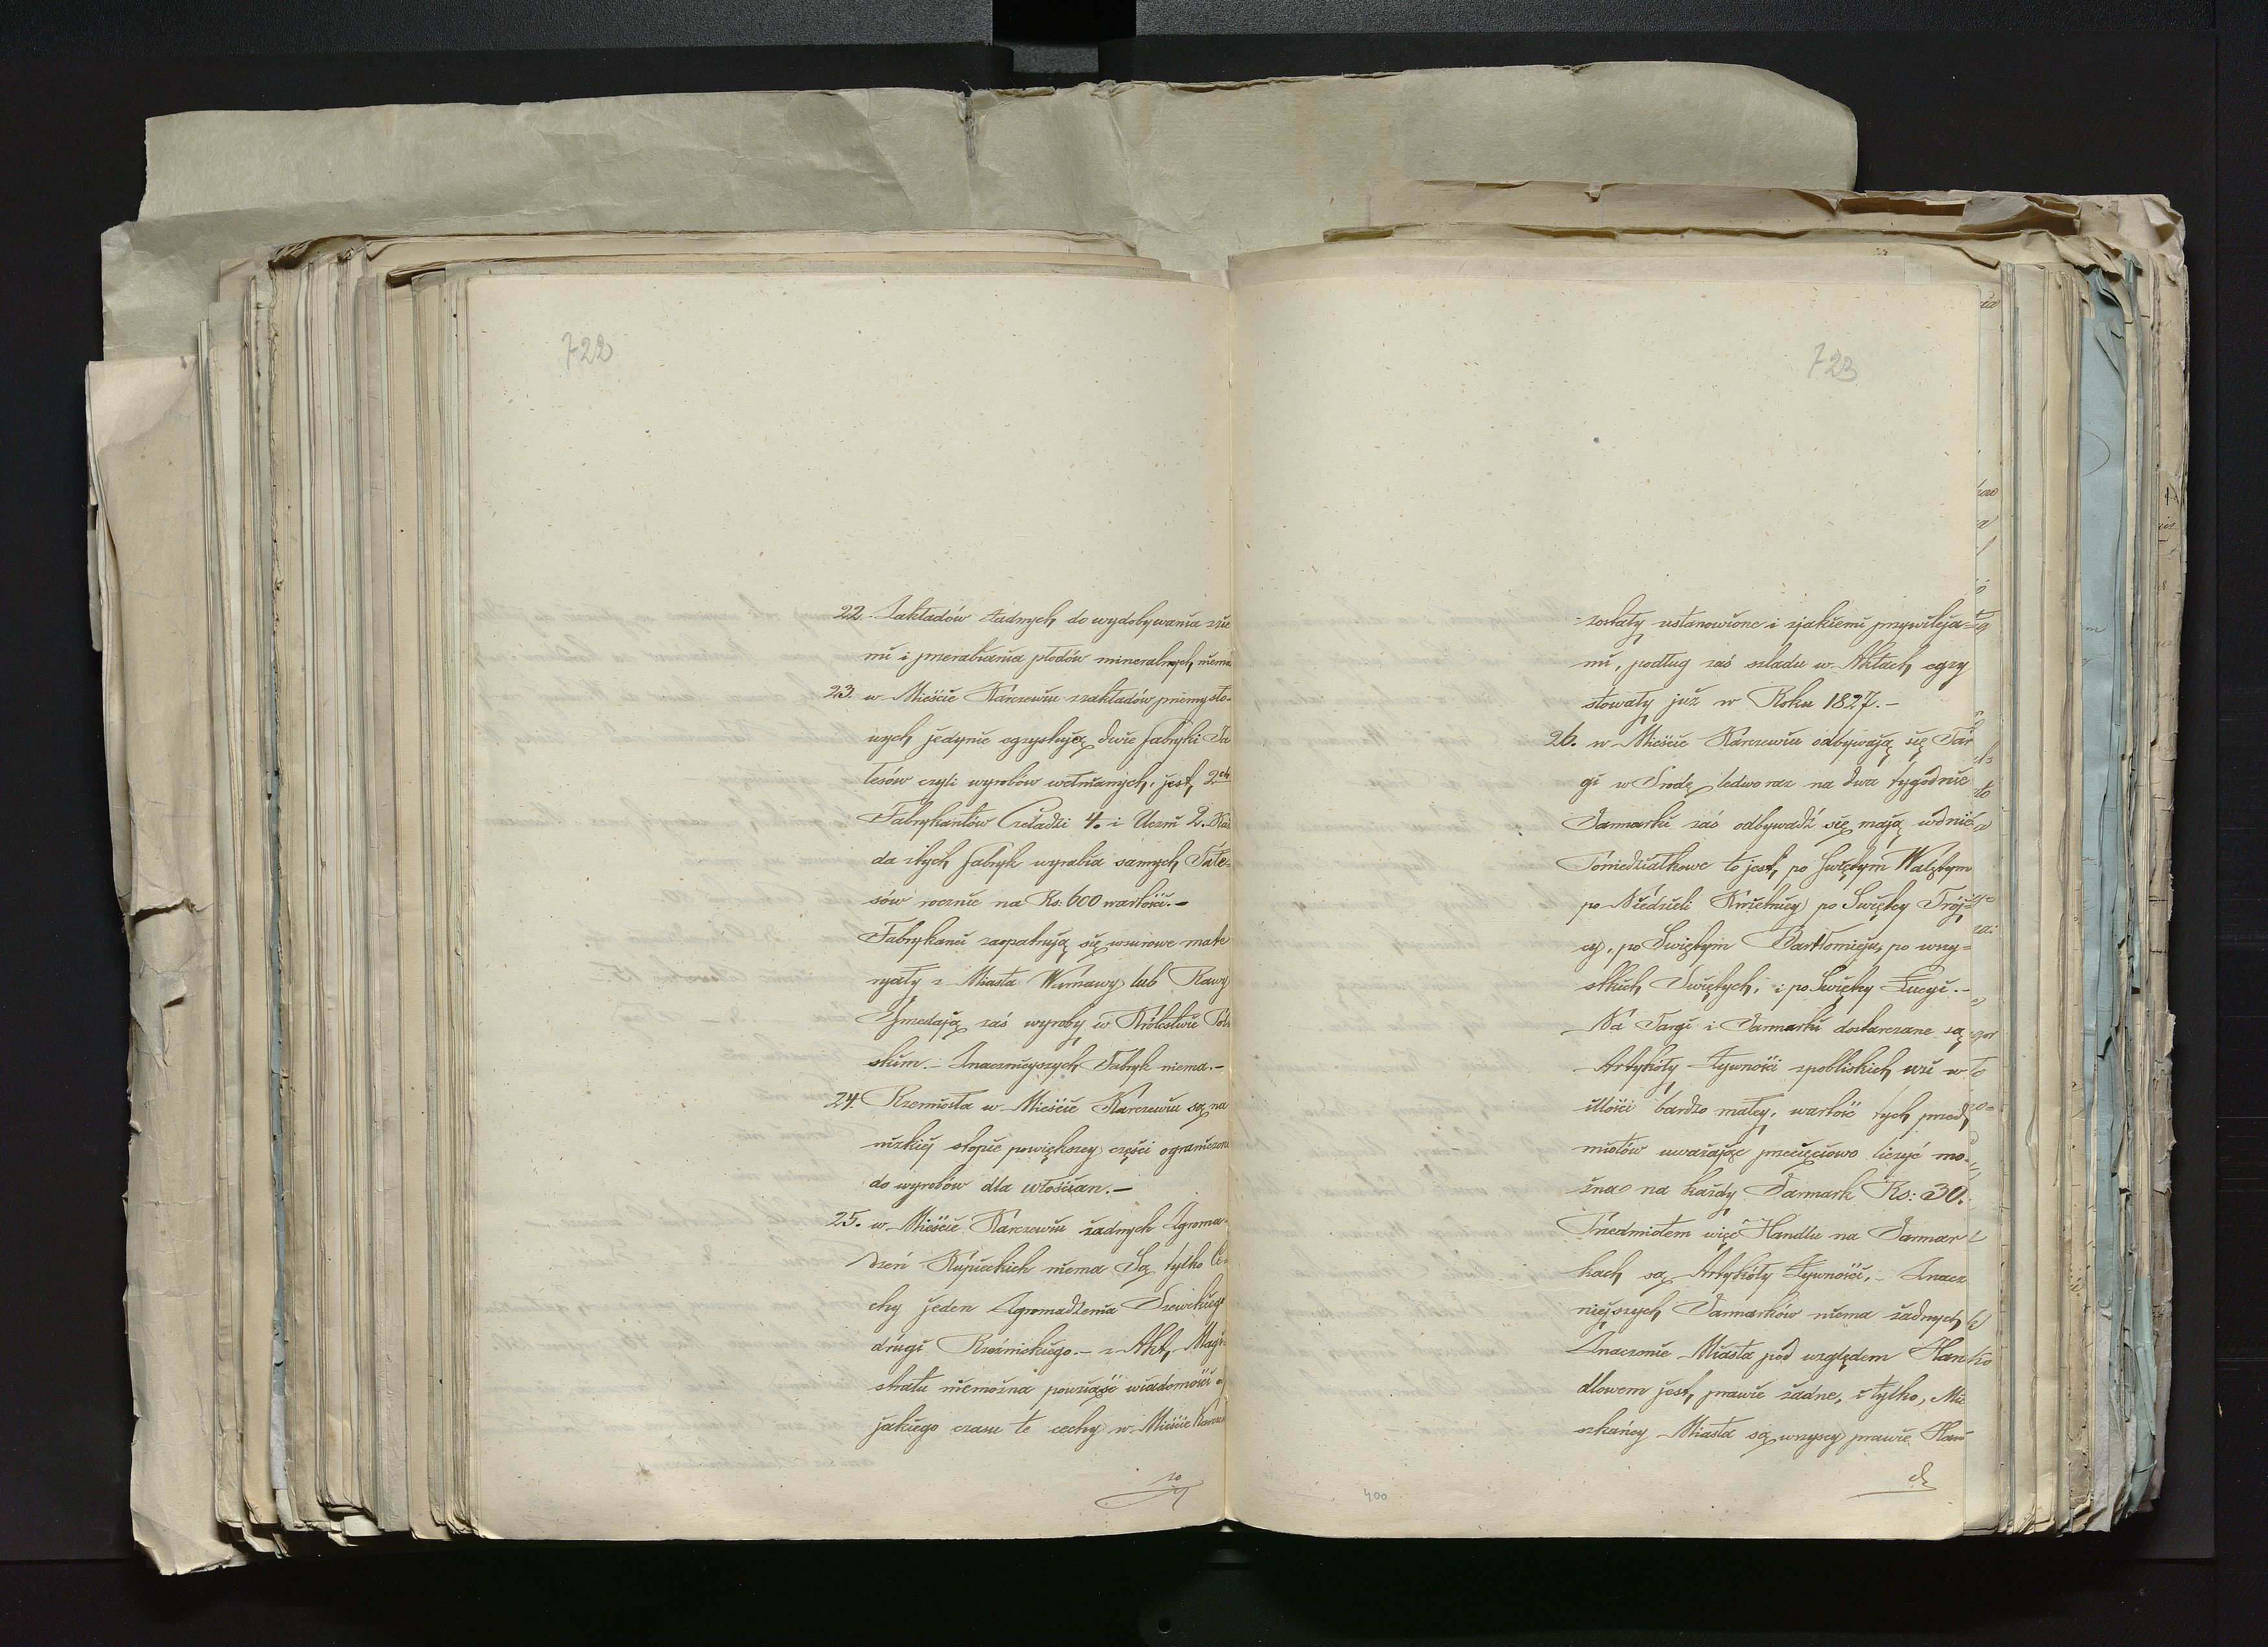 722
22. Zakładów żadnych do wydobywania zie
mi i przerabiania płodów mineralnych niema
23. w Mieście Karczewiu z zakładów przemysło-
wych jedynie egzystują dwie fabryki Ta
lesów czyli wyrobów wełnianych, jest 2ch
Fabrykantów Czeladzi 4. i Uczni 2. Każ
da z tych fabryk wyrabia samych Tale-
sów rocznie na Rs: 600 wartości.-
Fabrykanci zaopatrują się w surowe mate
ryały z Miasta Warszawy lub Rawy
Sprzedają zaś wyroby w Królestwie Pol
skim.- Znaczniejszych Fabryk niema.-
24. Rzemiosła w Mieście Karczewiu są na
nizkiej stopie powiększey części ograniczone
do wyrobów dla włościan.-
25. w Mieście Karczewiu żadnych Zgroma-
dzeń Kupieckich niema Są tylko Ce-
chy jeden Zgromadzenia Szewckiego
drugi Rzeźnickiego.- z Akt Magi-
stratu niemożna powziąść wiadomości od
jakiego czasu te cechy w Mieście Karczewiu
zo
723
zostały ustanowione i zjakiemi przywileja-
mi, podług zaś szladu w Aktach egzy
stowały już w Roku 1827.-
26. w Mieście Karczewiu odbywają się Tar
gi w Srodę ledwo raz na dwa tygodnie
Jarmarki zaś odbywadź się mają w dnie
Poniedziałkowe to jest, po Swiętym Walętym
po Niedzieli Kwietniey po Swiętey Trój-
cy, po Swiętym Bartłomieju, po wszy-
stkich Swiętych, i po Swiętey Łucyi.-
Na Targi i Jarmarki dostarczane są
Artykóły Żywności zpobliskich wsi w
illości bardzo małey, wartość tych przed
miotów uważając przecięciowo liczyć mo-
żna na każdy Jarmark Rs: 30.
Przedmiotem więc Handlu na Jarmar
kach są Artykóły Żywności,- Znacz
niejszych Jarmarków niema żadnych
Znaczenie Miasta pod względem Han
dlowem jest, prawie żadne, i tylko, Mie
szkańcy Miasta są wszyscy prawie Han
dl
400